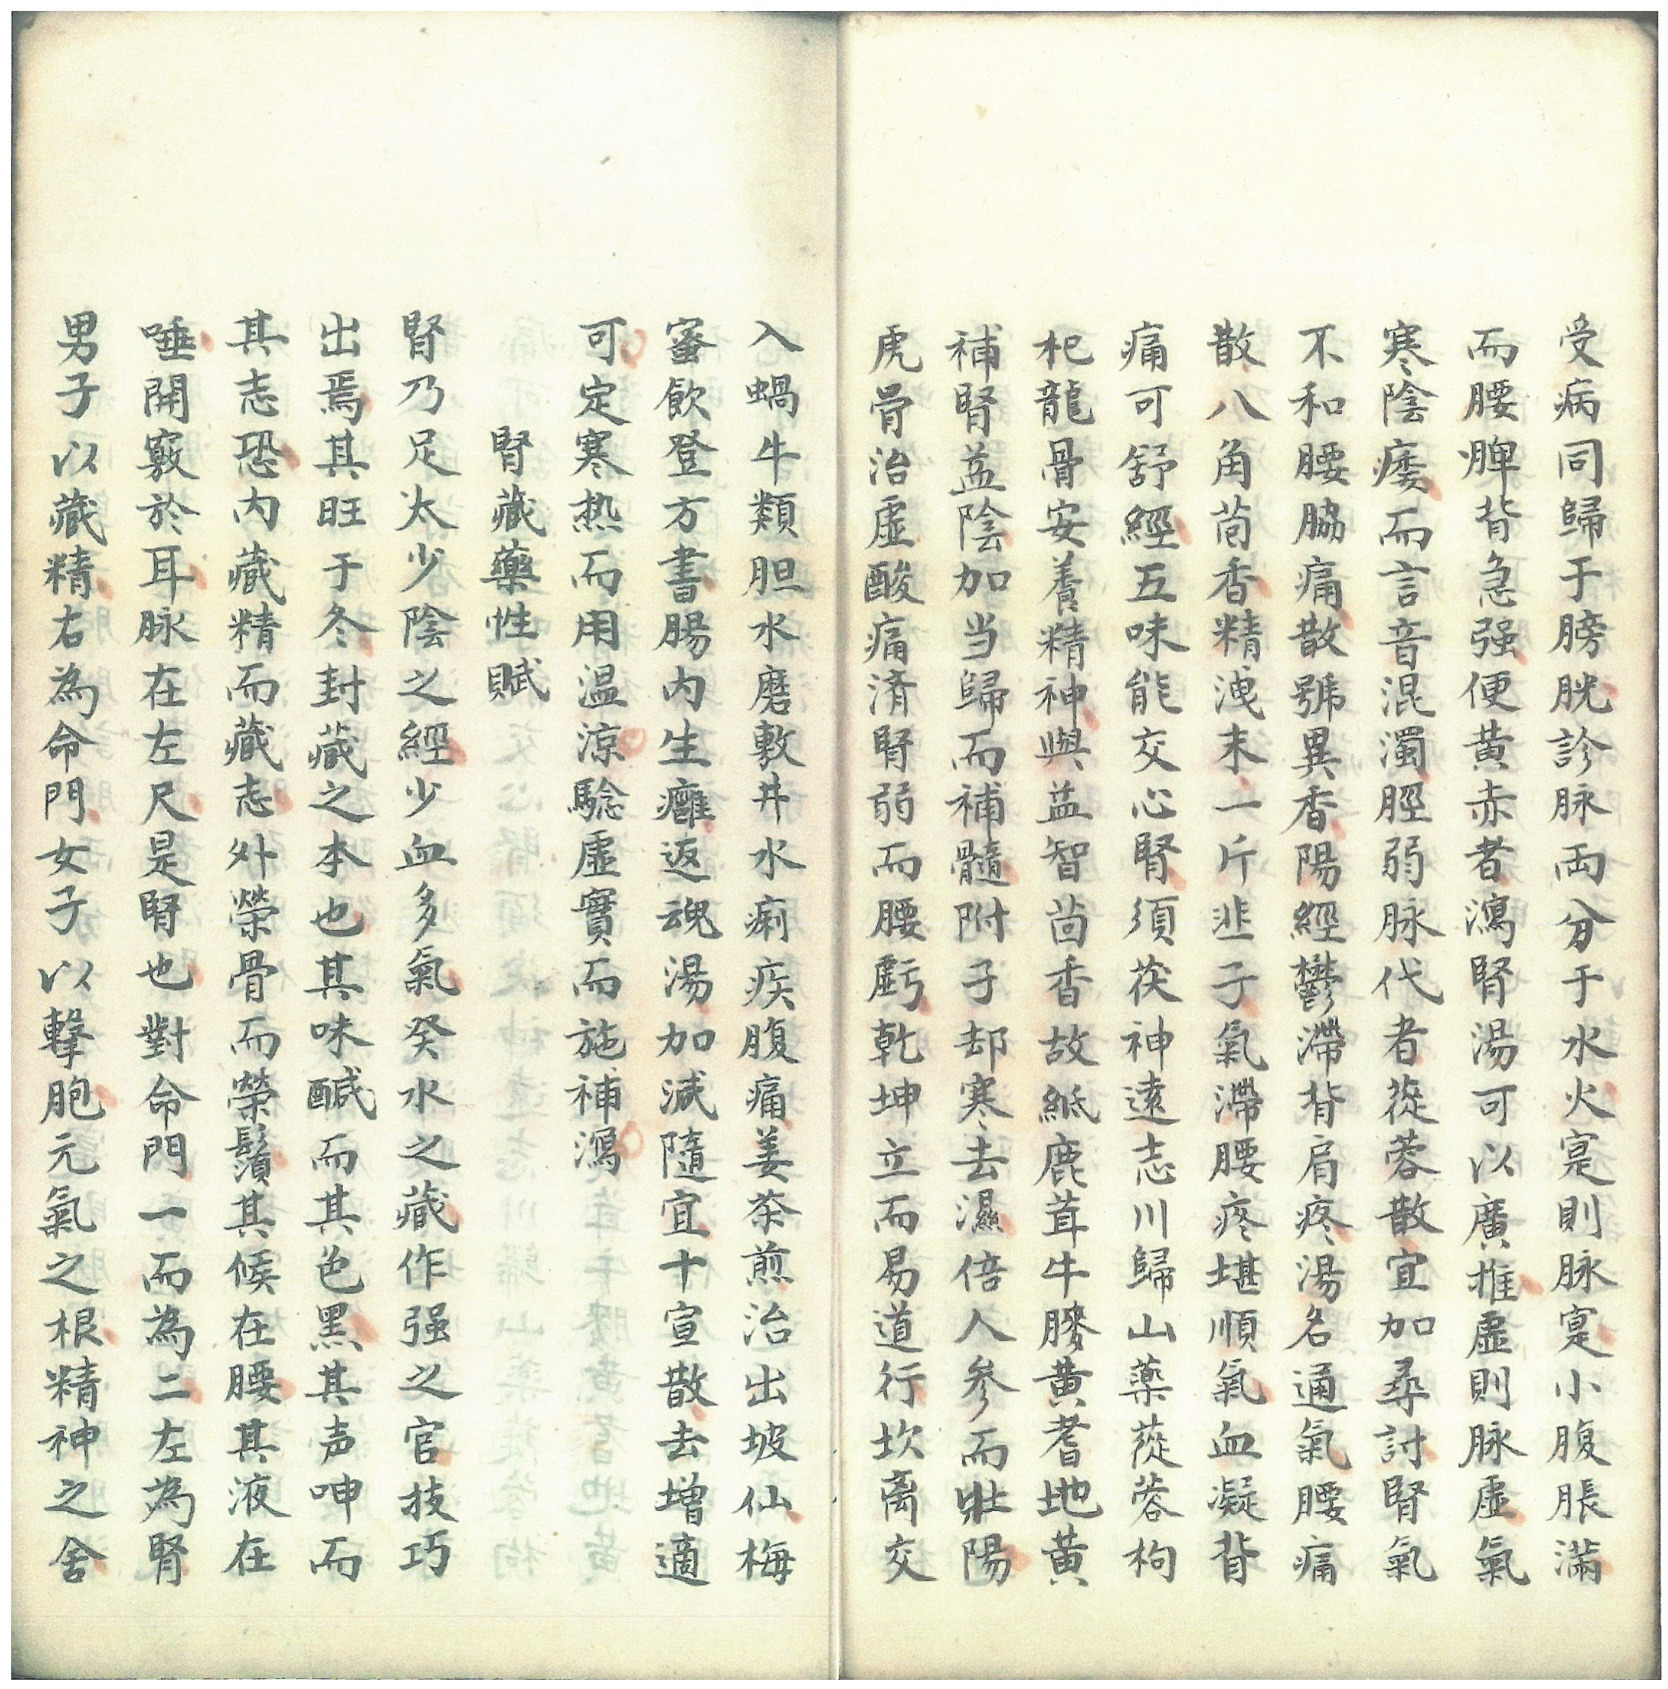 受病同歸于膀胱診脉両分于水火寔則脉寔小腹脹滿
而腰脾背急强便黄赤者瀉腎湯可以廣推虛則脉虛氣
寒陰痿而言音混濁脛弱脉代者蓯蓉散宜加尋討腎氣
不和腰脇痛散號異香陽經鬱滯背肩疼湯名通氣腰痛
散八角茴香精洩末一斤韭子氣滯腰疼堪順氣血凝背
痛可舒經五味能交心腎須茯神遠志川歸山藥蓯蓉枸
杞龍骨安養精神與益智茴香故紙鹿茸牛膝黄耆地黄
補腎益陰加当歸而補髓附子却寒去濕倍人參而壯陽
虎骨治虛酸痛済腎弱而腰虧乾坤立而易道行坎离交
入蝸牛類胆水磨敷井水痢疾腹痛姜茶煎治出坡仙梅
蜜飲登方書腸内生癰返魂湯加減隨宜十宣散去増適
可定寒熱而用温涼騐虛實而施補瀉
腎藏藥性賦
腎乃足太少陰之經少血多氣癸水之藏作强之官技巧
出焉其旺于冬封藏之本也其味醎而其色黑其声呻而
其志恐内藏精而藏志外榮骨而榮鬚其候在腰其液在
唾開竅於耳脉在左尺是腎也對命門一而為二左為腎
男子以藏精右為命門女子以擊胞元氣之根精神之舍